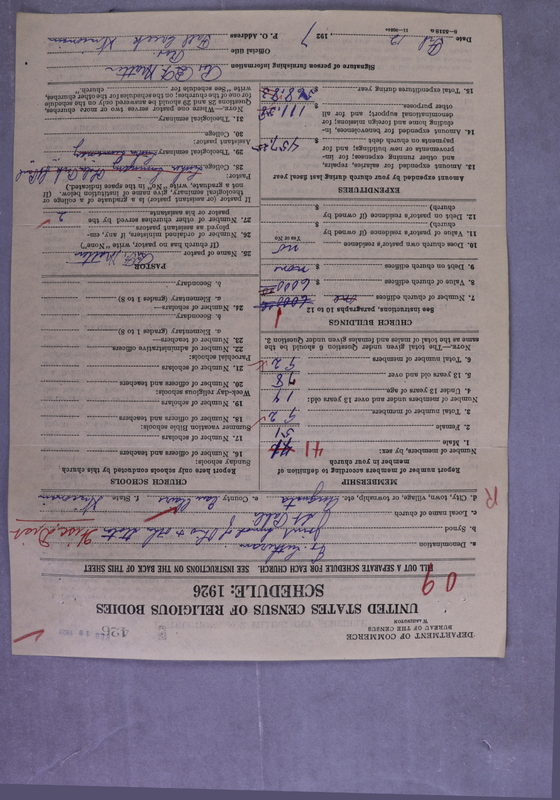 DEPARTMENT OF COMMERCE
BUREAU OF THE CENSUS
WASHINGTON
426
UNITED STATES CENSUS OF RELIGIOUS BODIES
SCHEDULE: 1926
09
FILL OUT A SEPARATE SCHEDULE FOR EACH CHURCH. SEE INSTRUCTIONS ON THE BACK OF THIS SHEET
a. Denomination Ev. Lutheran
b. Synod Joint Synod of Ohio & oth. States Wisc. Dist.
c. Local name of church St Pauls
d. City, town, village, or township, etc. Augusta e. County Eau Claire f. State Wisconsin
R
MEMBERSHIP
Report number of members according to definition of member in your church
Number of members, by sex:
1. Male 41
2. Female 51
3. Total number of members 92
Number of members under and over 13 years old:
4. Under 13 years of age 14
5. 13 years old and over 78
6. Total number of members 92
NOTE.—The total given under Question 6 should be the same as the total of males and females given under Question 3.
CHURCH BUILDINGS
See instructions, paragraphs 10 to 12
7. Number of church edifices one
8. Value of church edifices $ 6000.00
9. Debt on church edifices $ none
10. Does church own pastor's residence no
Yes or No
11. Value of pastor's residence (if owned by church) $
12. Debt on pastor's residence (if owned by church) $
EXPENDITURES
Amount expended by your church during last fiscal year
13. Amount expended for salaries, repairs, and other running expenses; for improvements or new buildings; and for payments on church debt $
14. Amount expended for benevolences, including home and foreign missions; for denominational support; and for all other purposes $
15. Total expenditures during year $
CHURCH SCHOOLS
Report here only schools conducted by this church
Sunday schools:
16. Number of officers and teachers
17. Number of scholars
Summer vacation Bible schools:
18. Number of officers and teachers
19. Number of scholars
Week-day religious schools:
20. Number of officers and teachers
21. Number of scholars
Parochial schools:
22. Number of administrative officers
23. Number of teachers—
a. Elementary (grades 1 to 8)
b. Secondary
24. Number of scholars—
a. Elementary (grades 1 to 8)
b. Secondary
PASTOR
25. Name of pastor
(If church has no pastor, write "None")
26. Number of ordained ministers, if any, employed as assistant pastors
27. Number of other churches served by the pastor or his assistants 2
If pastor (or assistant pastor) is a graduate of a college or theological seminary, give name of institution below. (If not a graduate, write "No" in the space indicated.)
Pastor:
28. College
29. Theological seminary
Assistant pastor:
30. College
31. Theological seminary
NOTE.—Where one pastor serves two or more churches, Questions 28 and 29 should be answered only on the schedule for one of the churches; on the schedules for the other churches, write "See schedule for church."
Signature of person furnishing information
Official title
P. O. Address Fall Creek Wisconsin
Date Feb 12, 1927